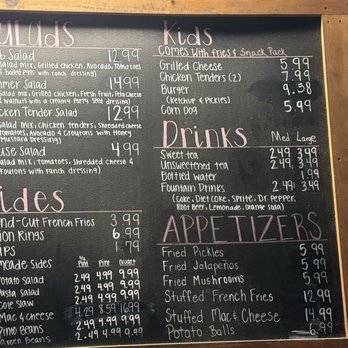 alads
b Salad 12.99
Salad mix, Grilled chicken, Avocado, Tomatoes
boiled eggs with ranch dressing)
mmer Salad 14.99
Salad mix, Grilled chicken, Fresh Fruit, Feta Cheese
walnuts with a creamy poppy seed dressing)
ken Tender Salad 12.99
Salad mix, chicken tenders, Shredded cheese
tomatoes, Avocado & Croutons with Honey
Mustard Dressing)
use Salad 4.99
Salad mix, tomatoes, Shredded Cheese &
croutons with ranch dressing)
ides
nd-Cut French Fries 3.99
ion Rings 6.99
ips 1.79
made Sides
½ Pint Pint Quart
otato Salad 2.49 4.99 9.99
asta Salad 2.49 4.99 9.99
ole Slaw 2.49 4.99 9.99
Mac & cheese 4.29 8.59 16.99
Pinto Beans 2.49 4.99 9.99
Green Beans 2.49 4.99 9.99
Kids
Comes with fries & Snack Pack
Grilled Cheese 5.99
Chicken Tenders (2) 7.99
Burger 9.38
(Ketchup & Pickles)
Corn Dog 5.99
Drinks
Med. Large
Sweet tea 2.49 3.49
Unsweetened tea 2.49 3.49
Bottled water 1.99
Fountain Drinks 2.49 3.49
(Coke, Diet Coke, Sprite, Dr. Pepper,
Root Beer, Lemonade, orange Soda)
APPETIZERS
Fried Pickles 5.99
Fried Jalapeños 5.99
Fried Mushrooms 5.99
Stuffed French Fries 12.99
Stuffed Mac & Cheese 14.99
Potato Balls 6.99